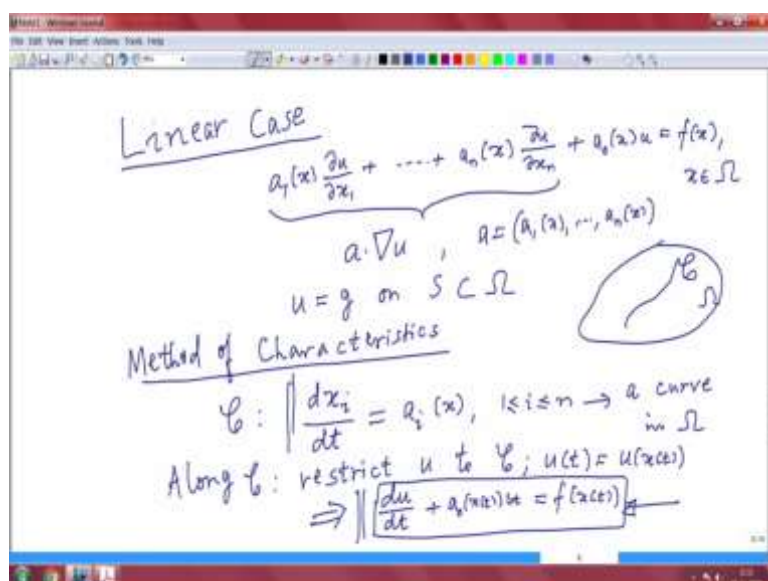 File Edit View Insert Actions Tools Help
Linear Case
a₁(x) ∂u/∂x₁ + ..... + aₙ(x) ∂u/∂xₙ + a₀(x) u = f(x),
x ∈ Ω
a·∇u , a = (a₁(x), ..., aₙ(x))
u = g on S ⊂ Ω
𝒞
Ω
Method of Characteristics
𝒞 : || dxᵢ/dt = aᵢ(x), 1 ≤ i ≤ n → a curve
in Ω
Along 𝒞 : restrict u to 𝒞 ; u(t) = u(x(t))
⇒ || du/dt + a₀(x(t)) u(t) = f(x(t)) ⇐